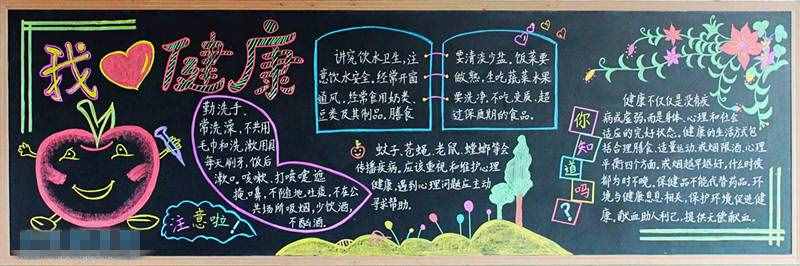 我 健康
勤洗手、
常洗澡,不共用
毛巾和洗漱用具
每天刷牙,饭后
漱口。咳嗽、打喷嚏遮
掩口鼻,不随地吐痰,不在公
共场所吸烟,少饮酒,
不酗酒.
注意啦!
讲究饮水卫生,注
意饮水安全,经常开窗
通风.经常食用奶类、
豆类及其制品。膳食
要清淡少盐,饭菜要
做熟,生吃蔬菜水果
要洗净.不吃变质、超
过保质期的食品。
蚊子、苍蝇、老鼠、蟑螂等会
传播疾病。应该重视和维护心理
健康,遇到心理问题应主动
寻求帮助.
你知道吗?
健康不仅仅是没有疾
病或虚弱,而是身体、心理和社会
适应的完好状态。健康的生活方式包
括合理膳食、适量运动、戒烟限酒、心理
平衡四个方面。戒烟越早越好,什么时候
都为时不晚。保健品不能代替药品。环
境与健康息息相关,保护环境促进健
康。献血助人利己,提倡无偿献血。